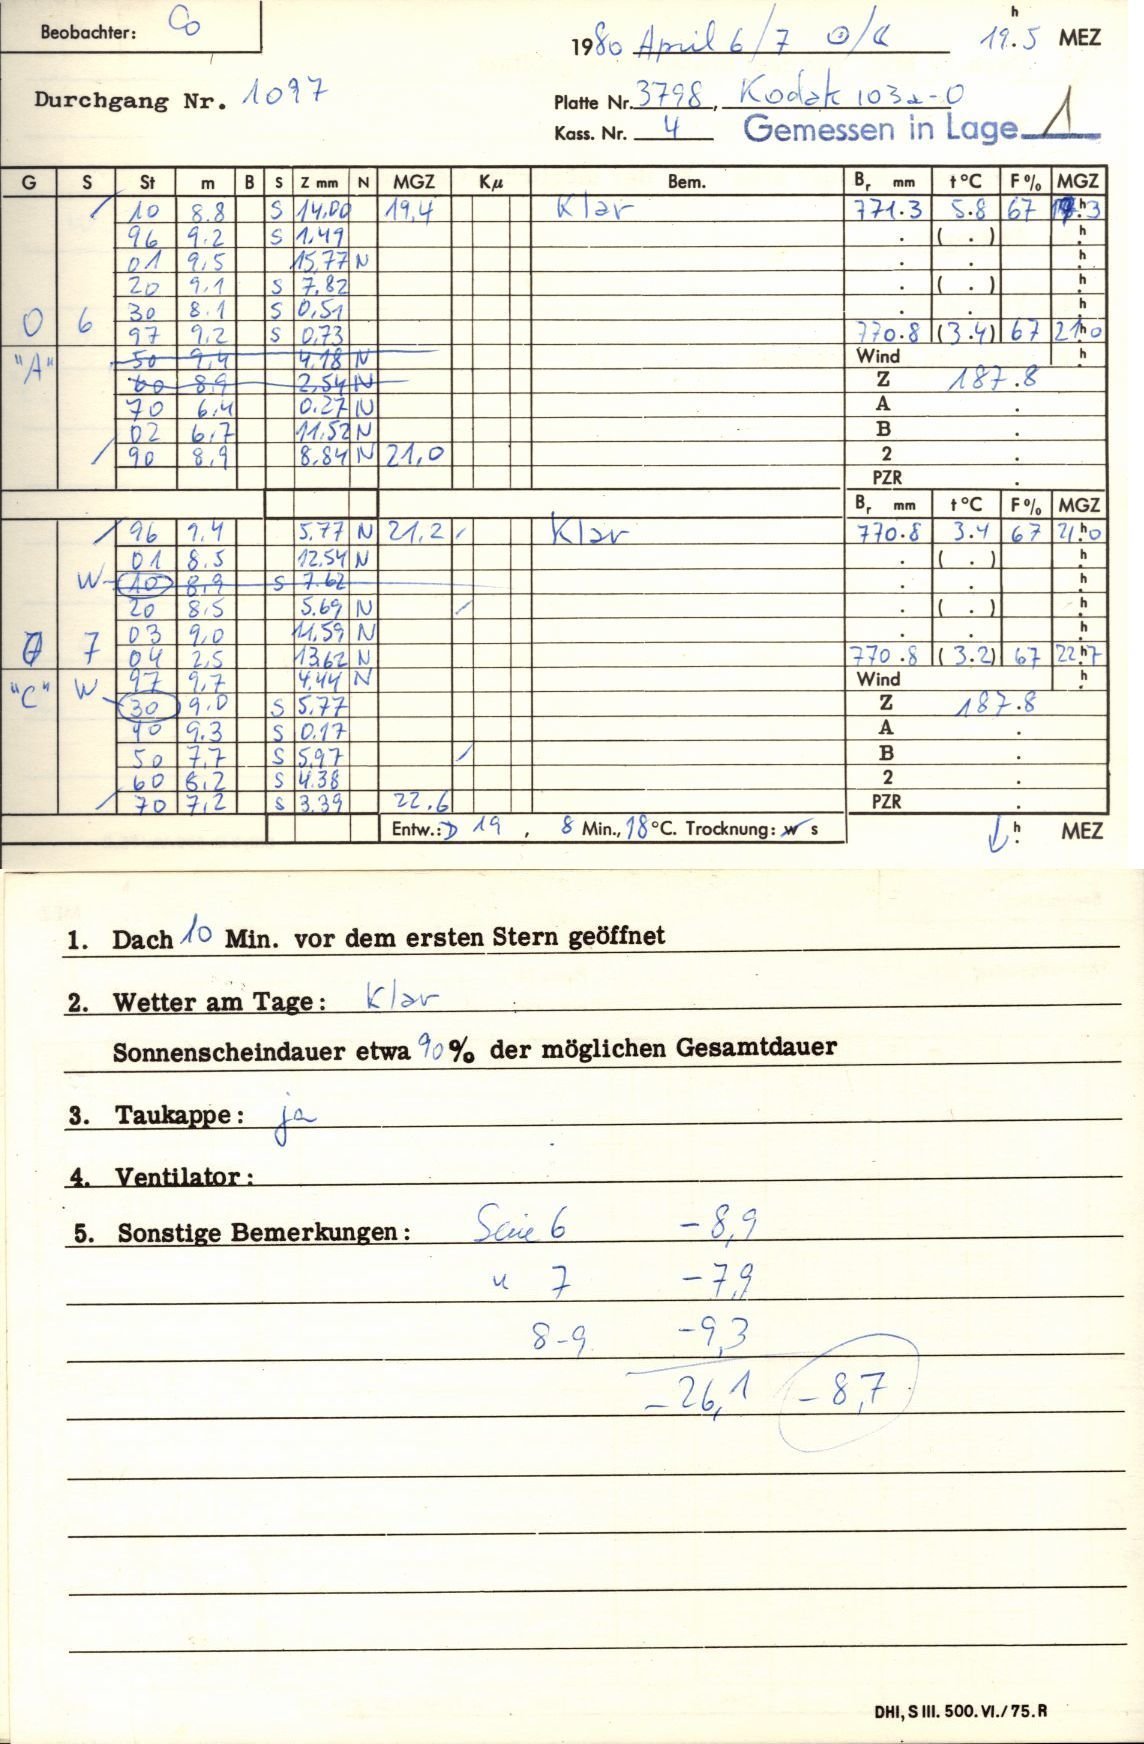 Beobachter: Co
1980 April 6/7 ⊙/☾ 19.5 h MEZ
Durchgang Nr. 1097
Platte Nr. 3798, Kodak 103a-O
Kass. Nr. 4 Gemessen in Lage 1
G S St m B S Z mm N MGZ Kµ Bem. Br mm t °C F % MGZ
10 8.8 S 14.00 19,4 Klar 771.3 5.8 67 h 3
96 9.2 S 1.49 . ( . ) h
01 9,5 15,77 N . . h
20 9.1 S 7,82 . ( . ) h
30 8.1 S 0,51 . . h
O 6 97 9,2 S 0,73 770.8 (3.4) 67 21h0
"A" 50 9,4 4,18 N Wind h
60 8,9 2,54 N Z 187.8
70 6,4 0.27 N A .
02 6,7 11,52 N B .
90 8,9 8,84 N 21,0 2 .
PZR .
Br mm t °C F % MGZ
96 9,4 5,77 N 21,2 Klar 770.8 3.4 67 21h0
01 8,5 12,54 N . ( . ) h
W 10 8,9 S 7.62 . . h
20 8,5 5,69 N . ( . ) h
03 9,0 11,59 N . . h
7 04 2,5 13,62 N 770.8 (3.2) 67 22h7
"C" W 97 9,7 4,44 N Wind h
30 9,0 S 5,77 Z 187.8
40 9,3 S 0,17 A .
50 7,7 S 5,97 B .
60 8,2 S 4.38 2 .
70 7,2 S 3.39 22.6 PZR .
Entw.: D 19 , 8 Min., 18 °C. Trocknung: w s h MEZ
1. Dach 10 Min. vor dem ersten Stern geöffnet
2. Wetter am Tage: Klar
Sonnenscheindauer etwa 90% der möglichen Gesamtdauer
3. Taukappe: ja
4. Ventilator:
5. Sonstige Bemerkungen: Serie 6 -8,9
" 7 -7,9
8-9 -9,3
-26,1 -8,7
DHI, S III. 500. VI./75. R